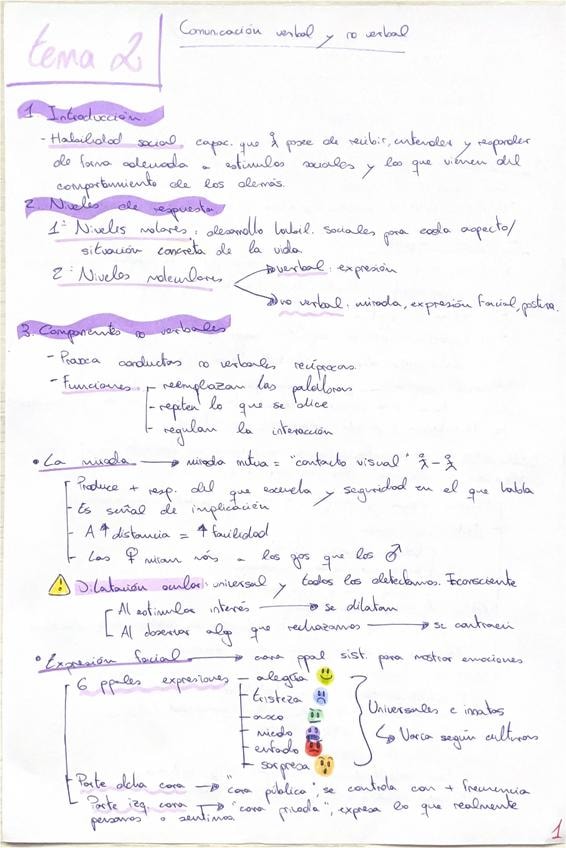 tema 2
Comunicación verbal y no verbal
1. Introducción.
- Habilidad social: capac. que posee de recibir, entender y responder
de forma adecuada a estímulos sociales y los que vienen del
comportamiento de los demás.
2. Niveles de respuesta
1º Niveles molares: desarrollo habil. sociales para cada aspecto/
situación concreta de la vida.
2º Niveles moleculares
verbal: expresión
no verbal: mirada, expresión facial, postura.
3. Componentes no verbales
- Provoca conductas no verbales recíprocas.
- Funciones
- reemplazan las palabras
- repiten lo que se dice
- regulan la interacción
• La mirada → mirada mutua = "contacto visual"
- Produce + resp. del que escucha y seguridad en el que habla
- Es señal de implicación
- A ↑ distancia = ↑ facilidad
- Las ♀ miran más a los ojos que los ♂
Dilatación ocular: universal y todos los detectamos. Inconsciente
Al estimular interés → se dilatan
Al observar algo que rechazamos → se contraen
• Expresión facial → cara ppal sist. para mostrar emociones
6 ppales expresiones
- alegría
- tristeza
- asco
- miedo
- enfado
- sorpresa
Universales e innatas
↳ Varía según culturas
- Parte dcha cara → "cara pública", se controla con + frecuencia
- Parte izq. cara → "cara privada", expresa lo que realmente
pensamos o sentimos.
1